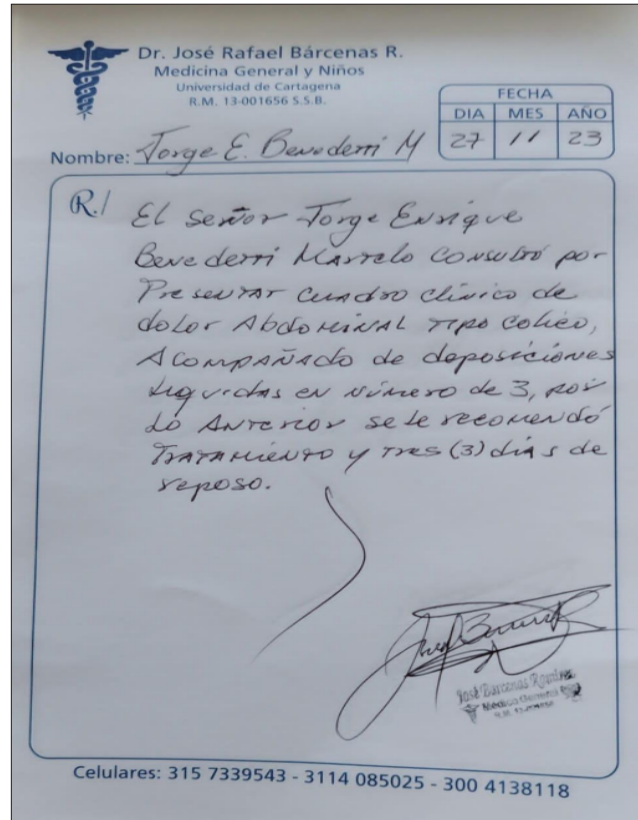 Dr. José Rafael Bárcenas R.
Medicina General y Niños
Universidad de Cartagena
R.M. 13-001656 S.S.B.
FECHA
DIA MES AÑO
27 11 23
Nombre: Jorge E. Benedetti M
R./
El señor Jorge Enrique
Benedetti Martelo consultó por
Presentar cuadro clínico de
dolor Abdominal tipo cólico,
Acompañado de deposiciones
líquidas en número de 3, por
lo Anterior se le recomendó
Tratamiento y tres (3) días de
reposo.
José Bárcenas Ramírez
Médico General
R.M. 13-001656
Celulares: 315 7339543 - 3114 085025 - 300 4138118